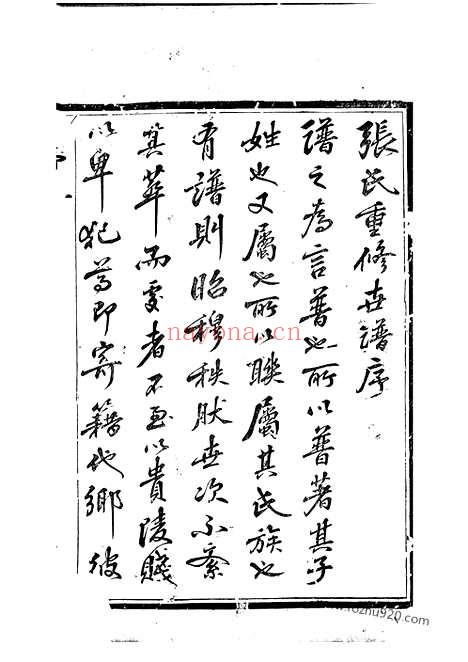 張氏重修世譜序
譜之為言普也所以普著其子
姓也又屬也所以聯屬其氏族也
有譜則昭穆秩狀世次不紊
算葬而受者不至以貴陵賤
以卑犯尊即寄籍他鄉彼
navona.cn
www.fozhu920.com